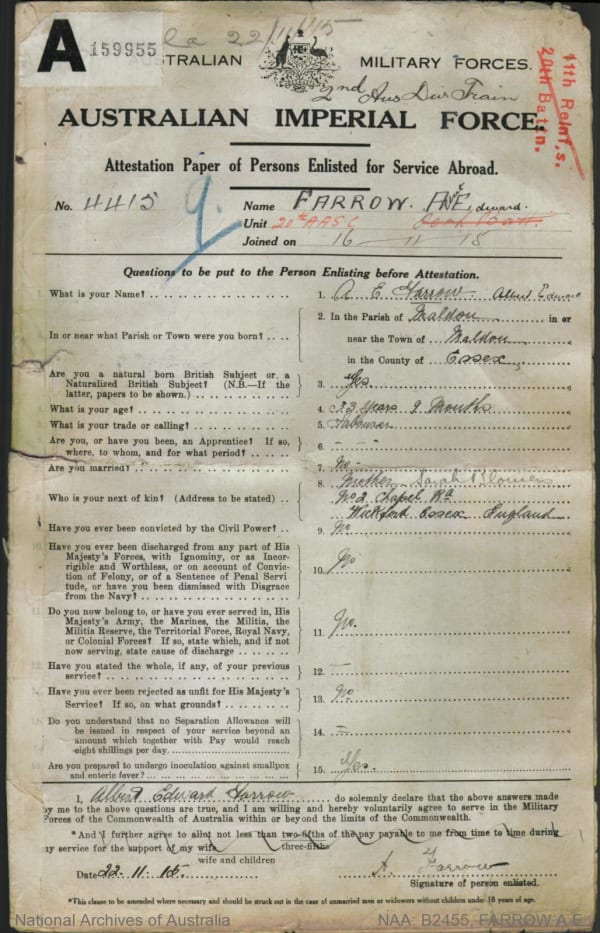 A 159955 22/11/15
AUSTRALIAN MILITARY FORCES.
2nd Aus Div Train
11th Reinf,s.
20th Battn.
AUSTRALIAN IMPERIAL FORCE.
Attestation Paper of Persons Enlisted for Service Abroad.
No. 4415 Name FARROW. A E, dward.
Unit 20th AASC
Joined on 16 — 11 — 15
Questions to be put to the Person Enlisting before Attestation.
What is your Name? 1. A E Farrow. Albert Edward
In or near what Parish or Town were you born? 2. In the Parish of Maldon in or
near the Town of Maldon
in the County of Essex
Are you a natural born British Subject or a
Naturalized British Subject? (N.B.—If the
latter, papers to be shown.) 3. Yes
What is your age? 4. 33 Years 9 Months
What is your trade or calling? 5. Labourer
Are you, or have you been, an Apprentice? If so,
where, to whom, and for what period? 6. - - -
Are you married? 7. No
Who is your next of kin? (Address to be stated) 8. Mother Sarah Blowers
No 2 Chapel Rd
Wickford Essex England
Have you ever been convicted by the Civil Power? 9. No
Have you ever been discharged from any part of His
Majesty's Forces, with Ignominy, or as Incor-
rigible and Worthless, or on account of Convic-
tion of Felony, or of a Sentence of Penal Servi
tude, or have you been dismissed with Disgrace
from the Navy? 10. No
Do you now belong to, or have you ever served in, His
Majesty's Army, the Marines, the Militia, the
Militia Reserve, the Territorial Force, Royal Navy,
or Colonial Forces? If so, state which, and if not
now serving, state cause of discharge 11. No.
Have you stated the whole, if any, of your previous
service? 12. —
Have you ever been rejected as unfit for His Majesty's
Service? If so, on what grounds? 13. No
Do you understand that no Separation Allowance will
be issued in respect of your service beyond an
amount which together with Pay would reach
eight shillings per day 14. —
Are you prepared to undergo inoculation against smallpox
and enteric fever? 15. Yes.
I, Albert Edward Farrow do solemnly declare that the above answers made
by me to the above questions are true, and I am willing and hereby voluntarily agree to serve in the Military
Forces of the Commonwealth of Australia within or beyond the limits of the Commonwealth.
*And I further agree to allot not less than two-fifths of the pay payable to me from time to time during
three-fifths
my service for the support of my wife
wife and children
Date 22.11.15. A. E Farrow
Signature of person enlisted.
*This clause to be amended where necessary and should be struck out in the case of unmarried men or widowers without children under 18 years of age.
National Archives of Australia NAA: B2455, FARROW A E